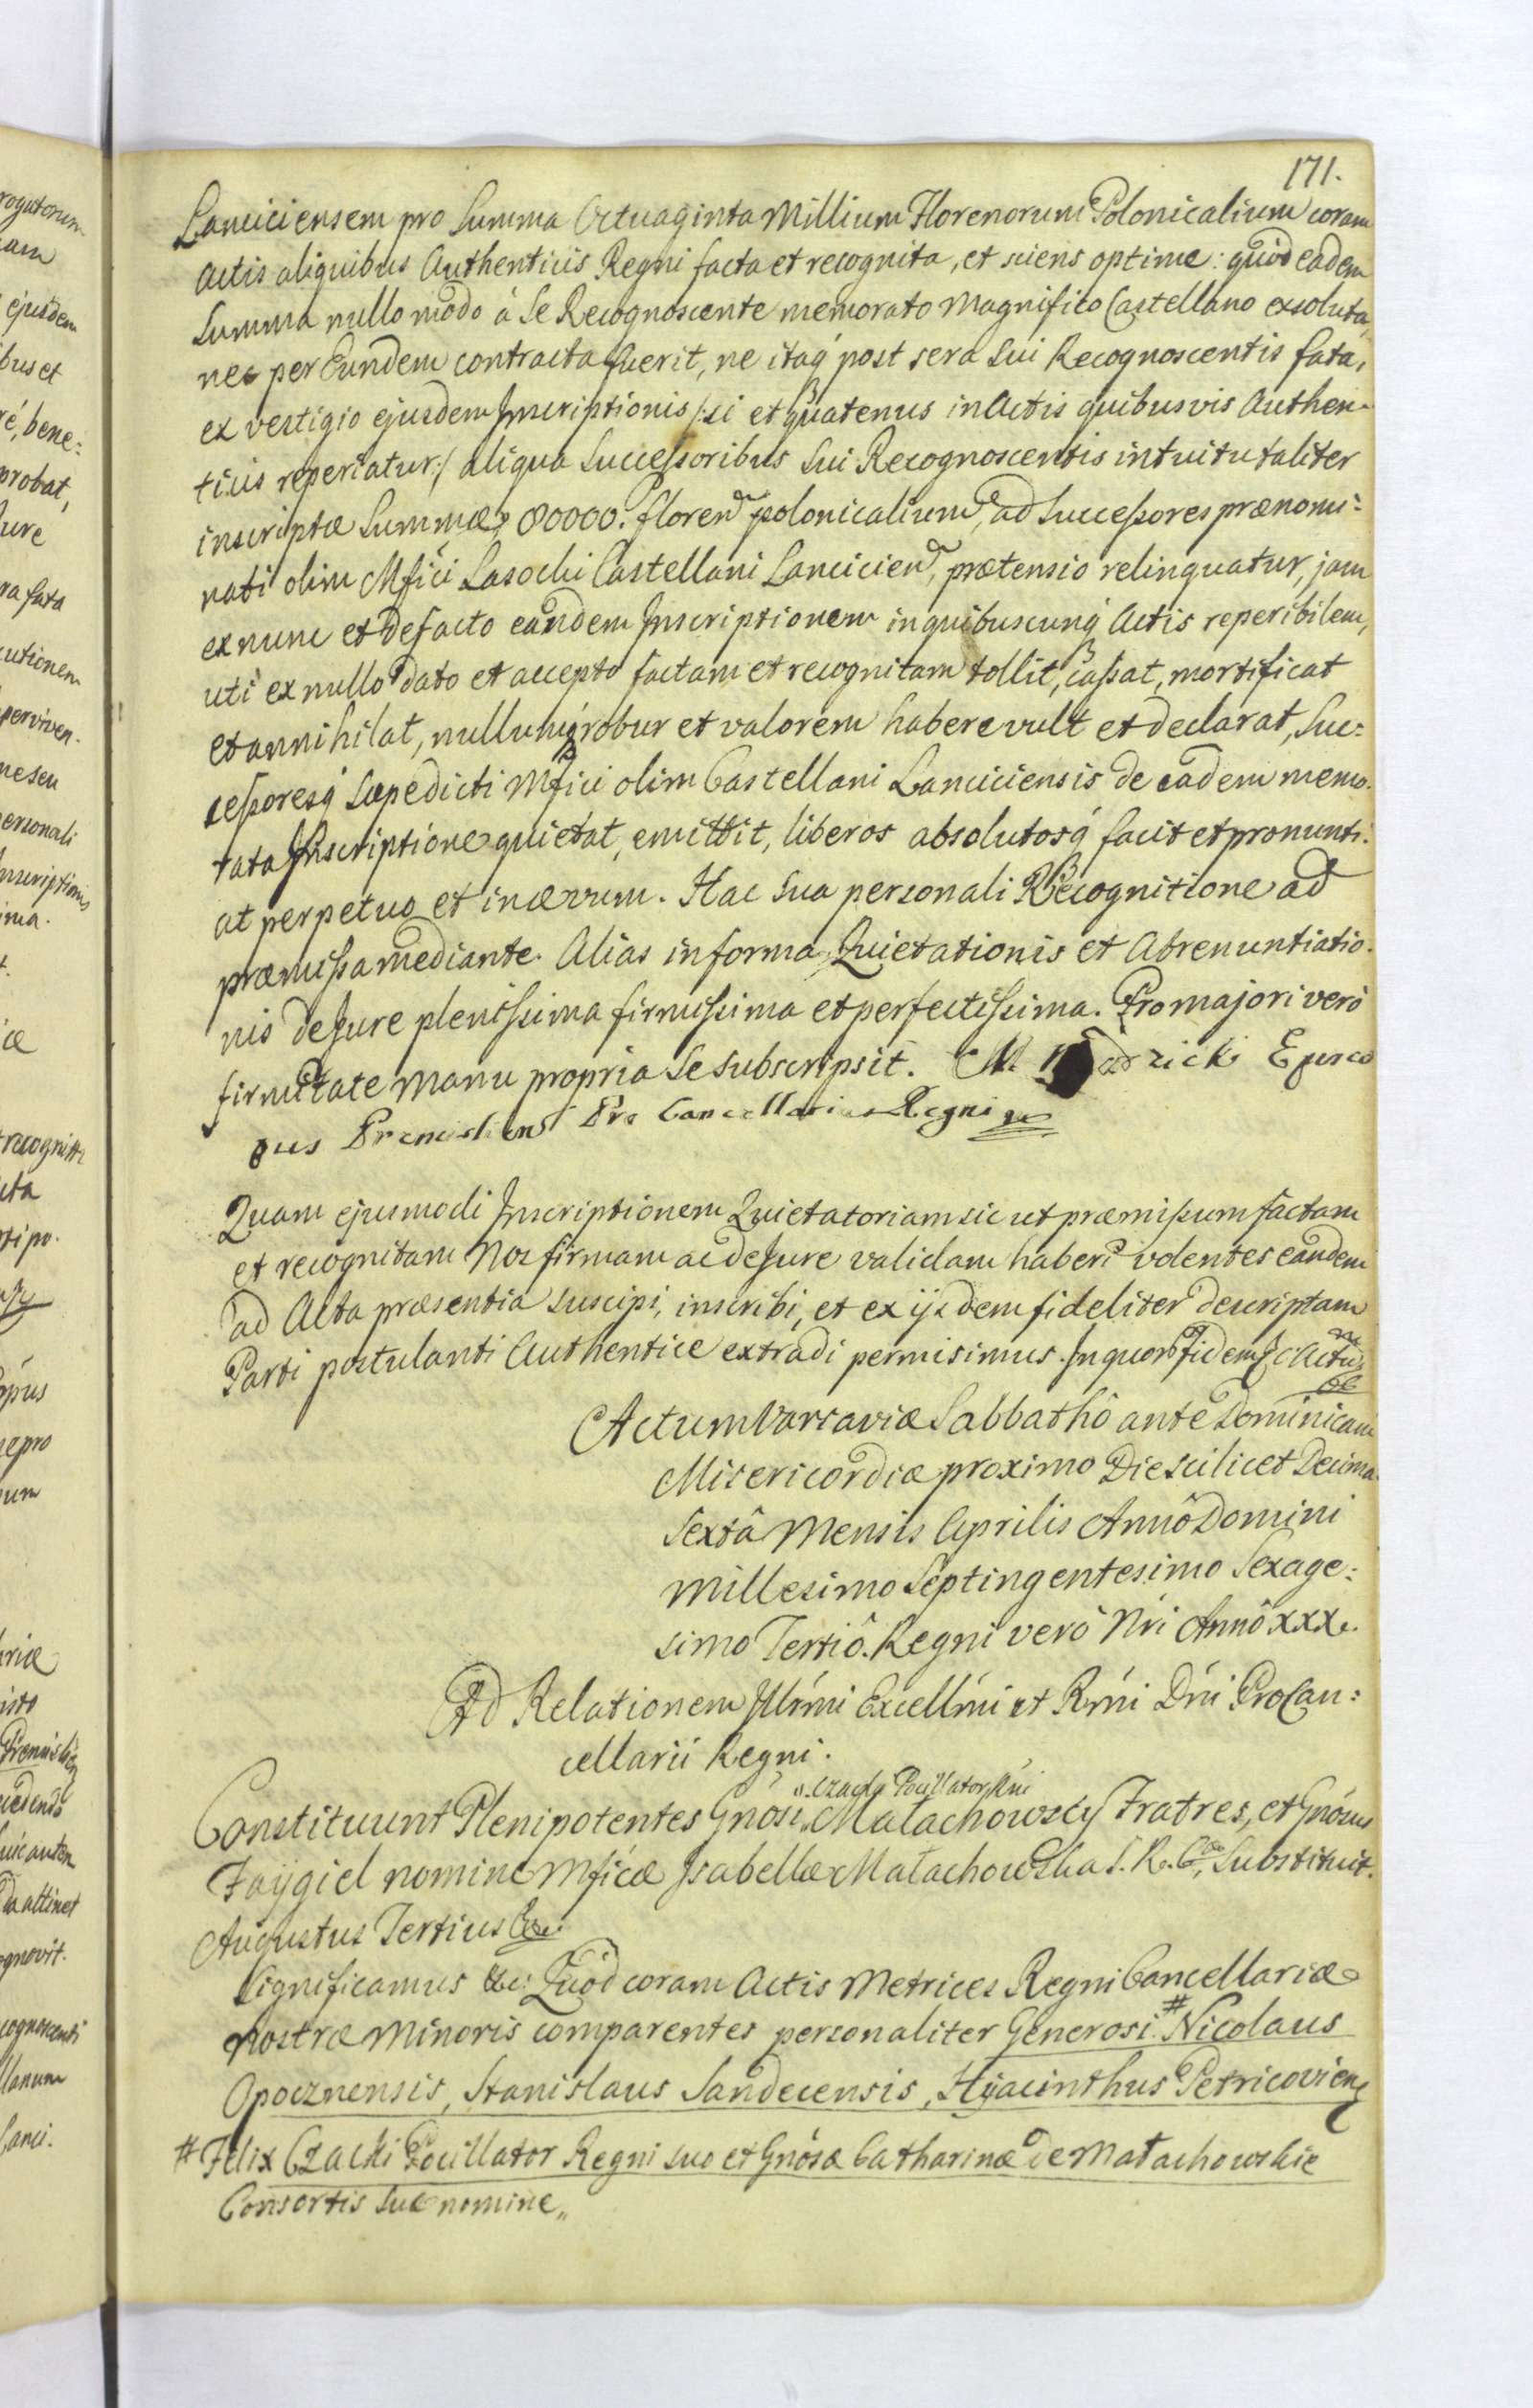 171.
Lanciciensem pro Summa Octuaginta Millium Florenorum Polonicalium coram
Actis aliquibus Authenticis Regni facta et recognita, et sciens optime: quod eadem
Summa nullo modo à Se Recognoscente memorato Magnifico Castellano exsoluta,
nec per Eundem contracta fuerit, ne itaq́ post sera Sui Recognoscentis fata,
ex vestigio ejusdem Inscriptionis /:si et quatenus in Actis quibusvis Authen-
ticis reperiatur:/ aliqua Successoribus Sui Recognoscentis intuitu taliter
inscriptæ Summæ 80000. floren polonicalium, ad Successores prænomi:
nati olim Mfici Lasocki Castellani Lancicien, prætensio relinquatur, jam
ex nunc et de facto eandem Inscriptionem in quibuscunq́ Actis reperibilem,
uti ex nullo dato et accepto factam et recognitam tollit, cassat, mortificat
et annihilat, nullumq́ robur et valorem habere vult et declarat, Suc:
cessoresq́ Sæpedicti Mfici olim Castellani Lanciciensis de eadem memo-
rata Inscriptione quietat, emittit, liberos absolutosq́ facit et pronunti:
at perpetuo et in ævum. Hac Sua personali Recognitione ad
præmissa mediante. Alias in forma Quietationis et Abrenuntiatio-
nis de Jure plenissima firmissima et perfectissima. Pro majori verò
firmitate Manu propria Se Subscripsit. M. zicki Episco
pus Premislien Pro Cancellarius Regni
Quam ejusmodi Inscriptionem Quietatoriam sic ut præmissum factam
et recognitam Nos firmam ac de Jure validam haberi volentes eandem
ad Acta præsentia suscipi, inscribi, et ex ijsdem fideliter descriptam
Parti postulanti Authentice extradi permisimus. In quor fidem &c. Actu
Actum Varsaviæ Sabbathô ante Dominicam
Misericordiæ proximo Die scilicet Decima
Sextâ Mensis Aprilis Annô Domini
Millesimo Septingentesimo Sexage:
simo Tertiô. Regni verò Nri Annô XXX.
Ad Relationem Illrmi Excellmi et Rmi Dni ProCan:
cellarii Regni.
Czacki Pocillator Rni
Constituunt Plenipotentes Gnosi Małachowscy Fratres, et Gnosus
Faygiel nomine Mficæ Isabellæ Małachowska S. R. C. Substituit.
Augustus Tertius &c.
Significamus &c: Quòd coram Actis Metrices Regni Cancellariæ
Nostræ Minoris comparentes personaliter Generosi # Nicolaus
Opocznensis, Stanislaus Sandecensis, Hyacinthus Petricovien
# Felix Czacki Pocillator Regni suo et Gnosæ Catharinæ de Małachowskie
Consortis Suæ nomine,,